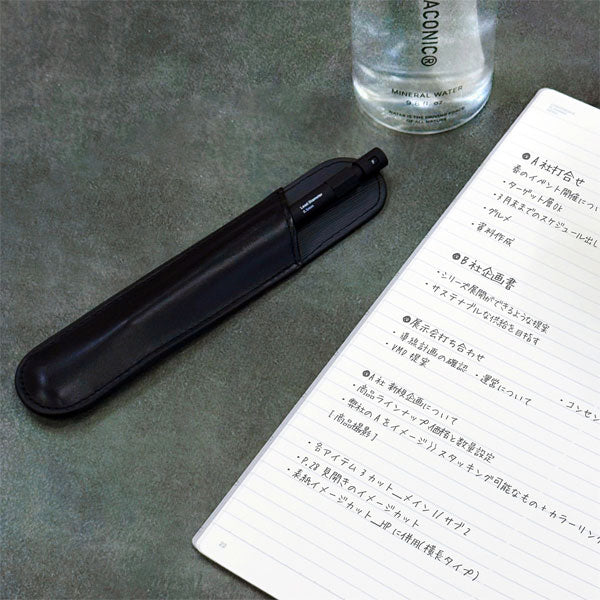 ACONIC®
MINERAL WATER
9.6 fl. oz
WATER IS THE DRIVING FORCE
OF ALL NATURE
Lead Dispenser
0.5mm
A社打合せ
春のイベント開催につ
・ターゲット層DL
・3月末までのスケジュール出し
・グルメ
・資料作成
B社企画書
・シリーズ展開ができるような提案
・サステナブルな供給を目指す
展示会打ち合わせ
・導線計画の確認 ・運営について ・コンセン
・VMD提案
A社 新規企画について
・商品ラインナップ 価格と数量設定
・弊社のAをイメージ)) スタッキング可能なもの+カラーリン
[商品撮影]
・各アイテム3カット__メイン1/サブ2
・P.28見開きのイメージカット
・表紙イメージカット__HPに併用(横長タイプ)